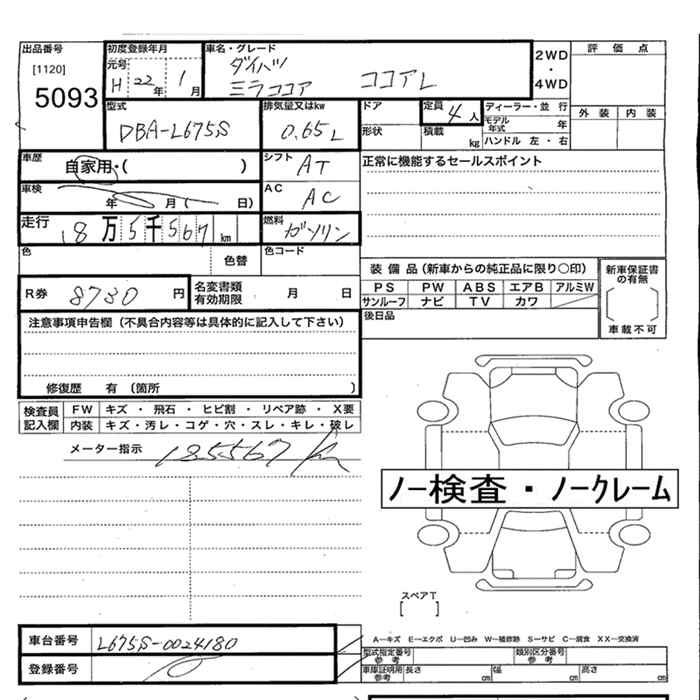 出品番号 初度登録年月 車名・グレード 2WD・4WD 評価点
[1120] 元号 ダイハツ
5093 H 22年 1月 ミラココア ココアL
型式 排気量又はkw ドア 定員 4人 ディーラー・並行 外装 内装
DBA-L675S 0.65L 形状 積載 kg モデル年式 年
ハンドル 左・右
車歴 自家用・( ) シフト AT 正常に機能するセールスポイント
車検 年 月( 日) AC AC
走行 18万5千567km 燃料 ガソリン
色 色替 色コード
装備品(新車からの純正品に限り○印) 新車保証書の有無
R券 8730円 名変書類有効期限 月 日 PS PW ABS エアB アルミW
サンルーフ ナビ TV カワ 車載不可
注意事項申告欄(不具合内容等は具体的に記入して下さい) 後日品
修復歴 有(箇所 )
検査員記入欄 FW キズ・飛石・ヒビ割・リペア跡・X要
内装 キズ・汚レ・コゲ・穴・スレ・キレ・破レ
メーター指示 185567km
ノー検査・ノークレーム
スペアT
[ ]
車台番号 L675S-0024180 A―キズ E―エクボ U―凹み W―補修跡 S―サビ C―腐食 XX―交換済
登録番号 型式指定番号 参考 類別区分番号 参考
車庫証明用 参考 長さ cm 幅 cm 高さ cm